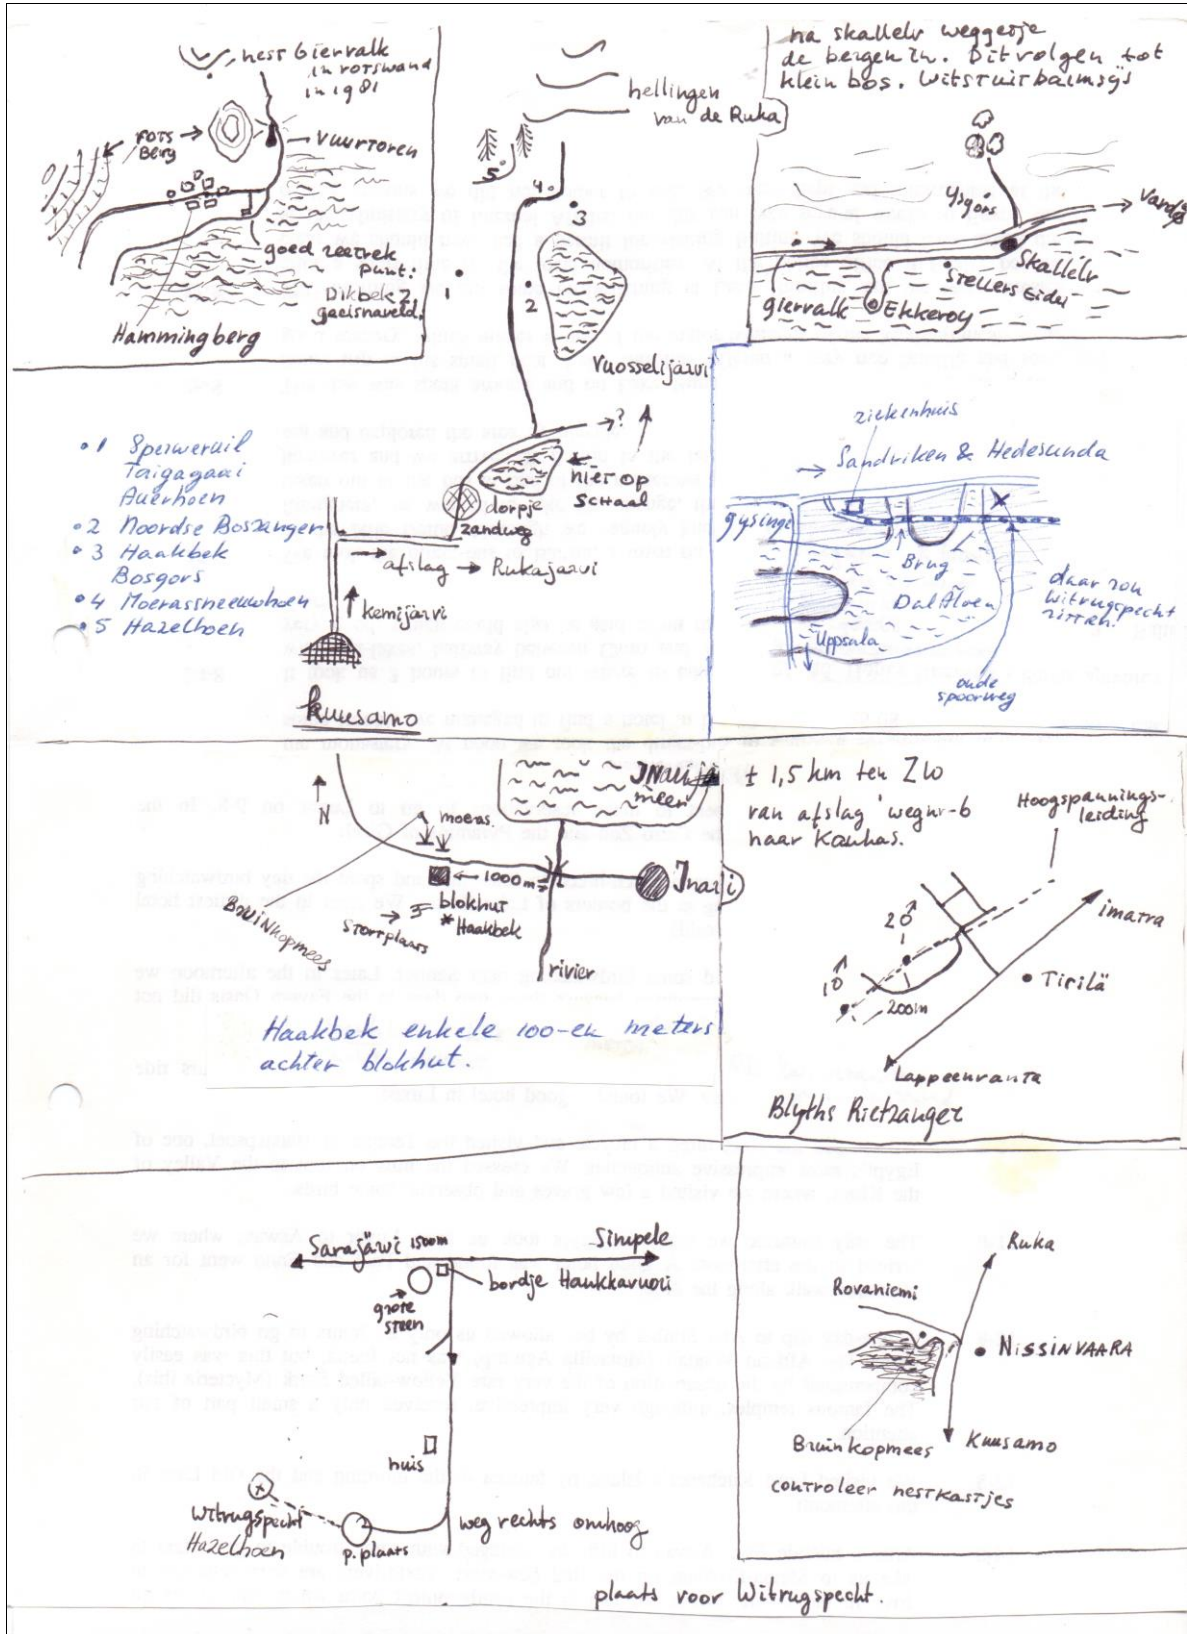 nest Giervalk
in rotswand
in 1981
rots
Berg
vuurtoren
goed zeetrek
punt:
Dikbekz.
geelsnaveld.
Hammingberg
hellingen
van de Ruka
5
4
3
1
2
Vuosselijärvi
?
hier op
schaal
dorpje
zandweg
afslag → Rukajärvi
kemijärvi
Kuusamo
1 Sperweruil
Taigagaai
Auerhoen
2 Noordse Boszanger
3 Haakbek
Bosgors
4 Moerassneeuwhoen
5 Hazelhoen
na skallelv weggetje
de bergen in. Dit volgen tot
klein bos. Witstuitbarmsijs
Ysgors
Vardø
Skallelv
Stellers Eider
giervalk
Ekkeroy
ziekenhuis
→ Sandviken & Hedesunda
gysinge
Brug
DalÄlven
Uppsala
daar zou
witrugspecht
zitten!
oude
spoorweg
INari
meer
N
moeras
1000 m
Inari
blokhut
* Haakbek
stortplaats
Bruinkopmees
rivier
Haakbek enkele 100-en meters
achter blokhut.
± 1,5 km ten ZW
van afslag wegnr-6
naar Kauhas.
Hoogspannings-
leiding
imatra
2♂
1♂
200m
Tirilä
Lappeenranta
Blyths Rietzanger
Sarajärvi 1500m
Simpele
bordje Haukkavuori
grote
steen
huis
witrugspecht
Hazelhoen
p.plaats
weg rechts omhoog
Ruka
Rovaniemi
NISSINVAARA
Bruinkopmees
Kuusamo
controleer nestkastjes
plaats voor Witrugspecht.